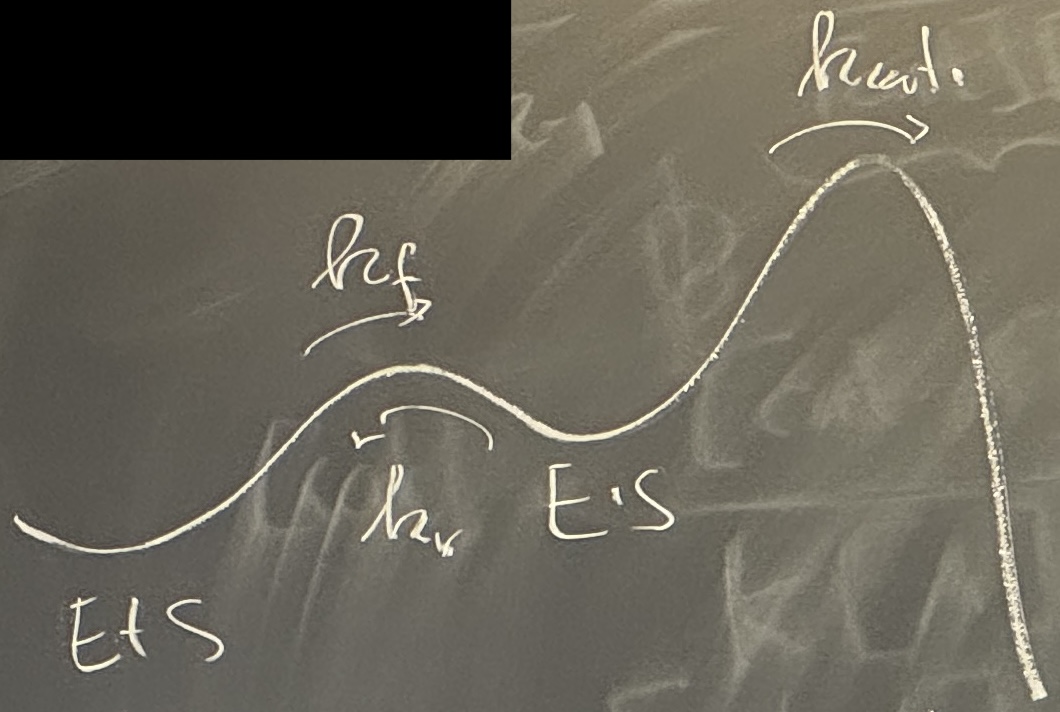 kcat.
kf
kr
E·S
E+S